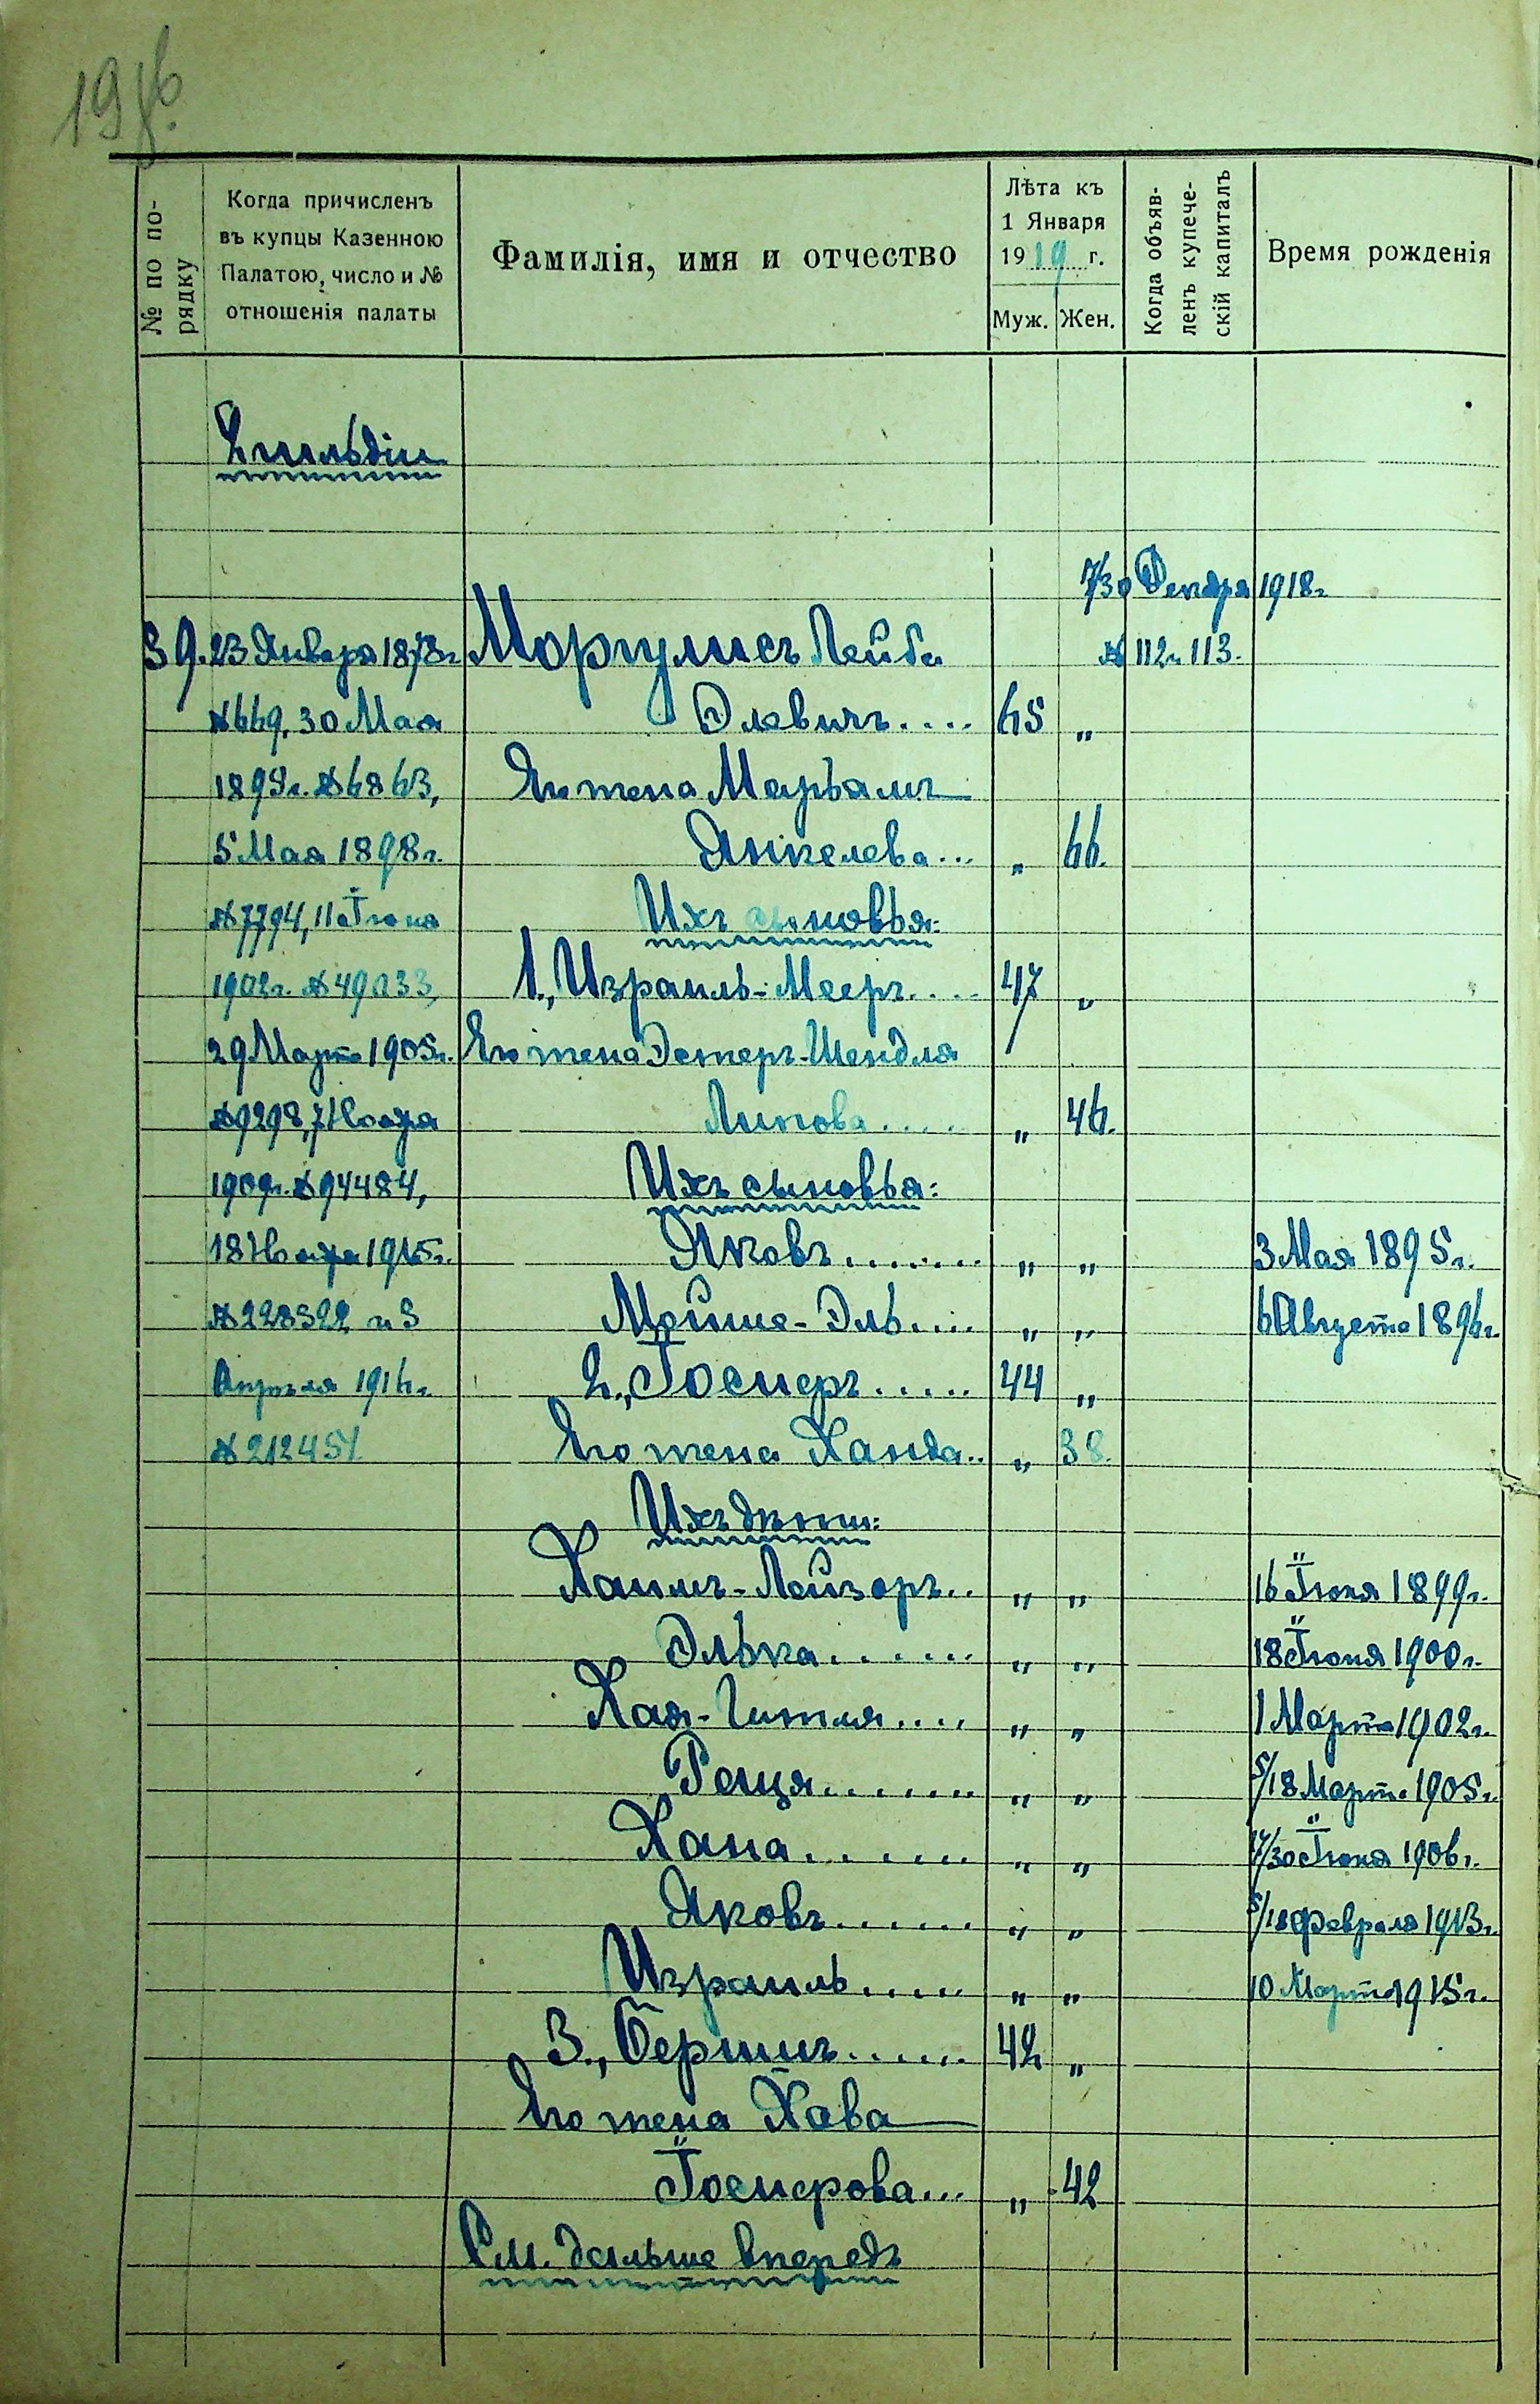 № по по-
рядку
Когда причисленъ
въ купцы Казенною
Палатою, число и №
отношенія палаты
Фамилія, имя и отчество
Лѣта къ
1 Января
1919 г.
Муж. Жен.
Когда объяв-
ленъ купече-
скій капиталъ
Время рожденія
2 гильдіи
17/30 Декабря 1918 г.
39. 23 Января 1873 г. Моргулисъ Лейба № 112 и 113.
№ 669, 30 Мая Элевичъ.... 65 „
1899 г. № 6863, Его жена Марьямъ
5 Мая 1898 г. Янкелева... „ 66.
№ 7794, 11 Іюня Ихъ сыновья:
1902 г. № 49033, 1., Израиль-Мееръ.... 47 „
29 Марта 1905 г. Его жена Эстеръ-Шендля
№ 9298, 7 Ноября Липова..... „ 46.
1909 г. № 94484, Ихъ сыновья:
18 Ноября 1915 г. Яковъ........ „ „ 3 Мая 1895 г.
№ 228322 и 3 Мойше-Эль.... „ „ 6 Августа 1896 г.
Апрѣля 1916 г. 2., Іосиеръ..... 44 „
№ 212451. Его жена Ханда.. „ 38.
Ихъ дѣти:
Хаимъ-Лейзоръ.. „ „ 16 Іюня 1899 г.
Элька...... „ „ 18 Іюня 1900 г.
Хая-Гитля.... „ „ 1 Марта 1902 г.
Реиця....... „ „ 5/18 Марта 1905 г.
Хана....... „ „ 17/30 Іюня 1906 г.
Яковъ....... „ „ 5/18 Февраля 1913 г.
Израиль..... „ „ 10 Марта 1915 г.
3., Бершъ...... 42 „
Его жена Хава
Іосиерова... „ 42
См. дальше впередъ